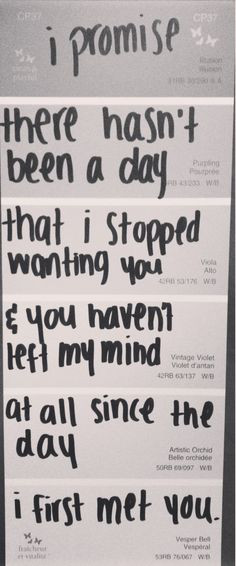 CP37 CP37
i promise
Illusion
Illusion
young &
playful
there hasn't
been a day
Purpling
Pourprée
43/233 W/B
that i stopped
wanting you
Viola
Alto
42RB 53/176 W/B
& you haven't
left my mind
Vintage Violet
Violet d'antan
42RB 63/137 W/B
at all since the
day
Artistic Orchid
Belle orchidée
50RB 69/097 W/B
i first met you.
fraîcheur
et vitalité
Vesper Bell
Vespéral
53RB 76/067 W/B